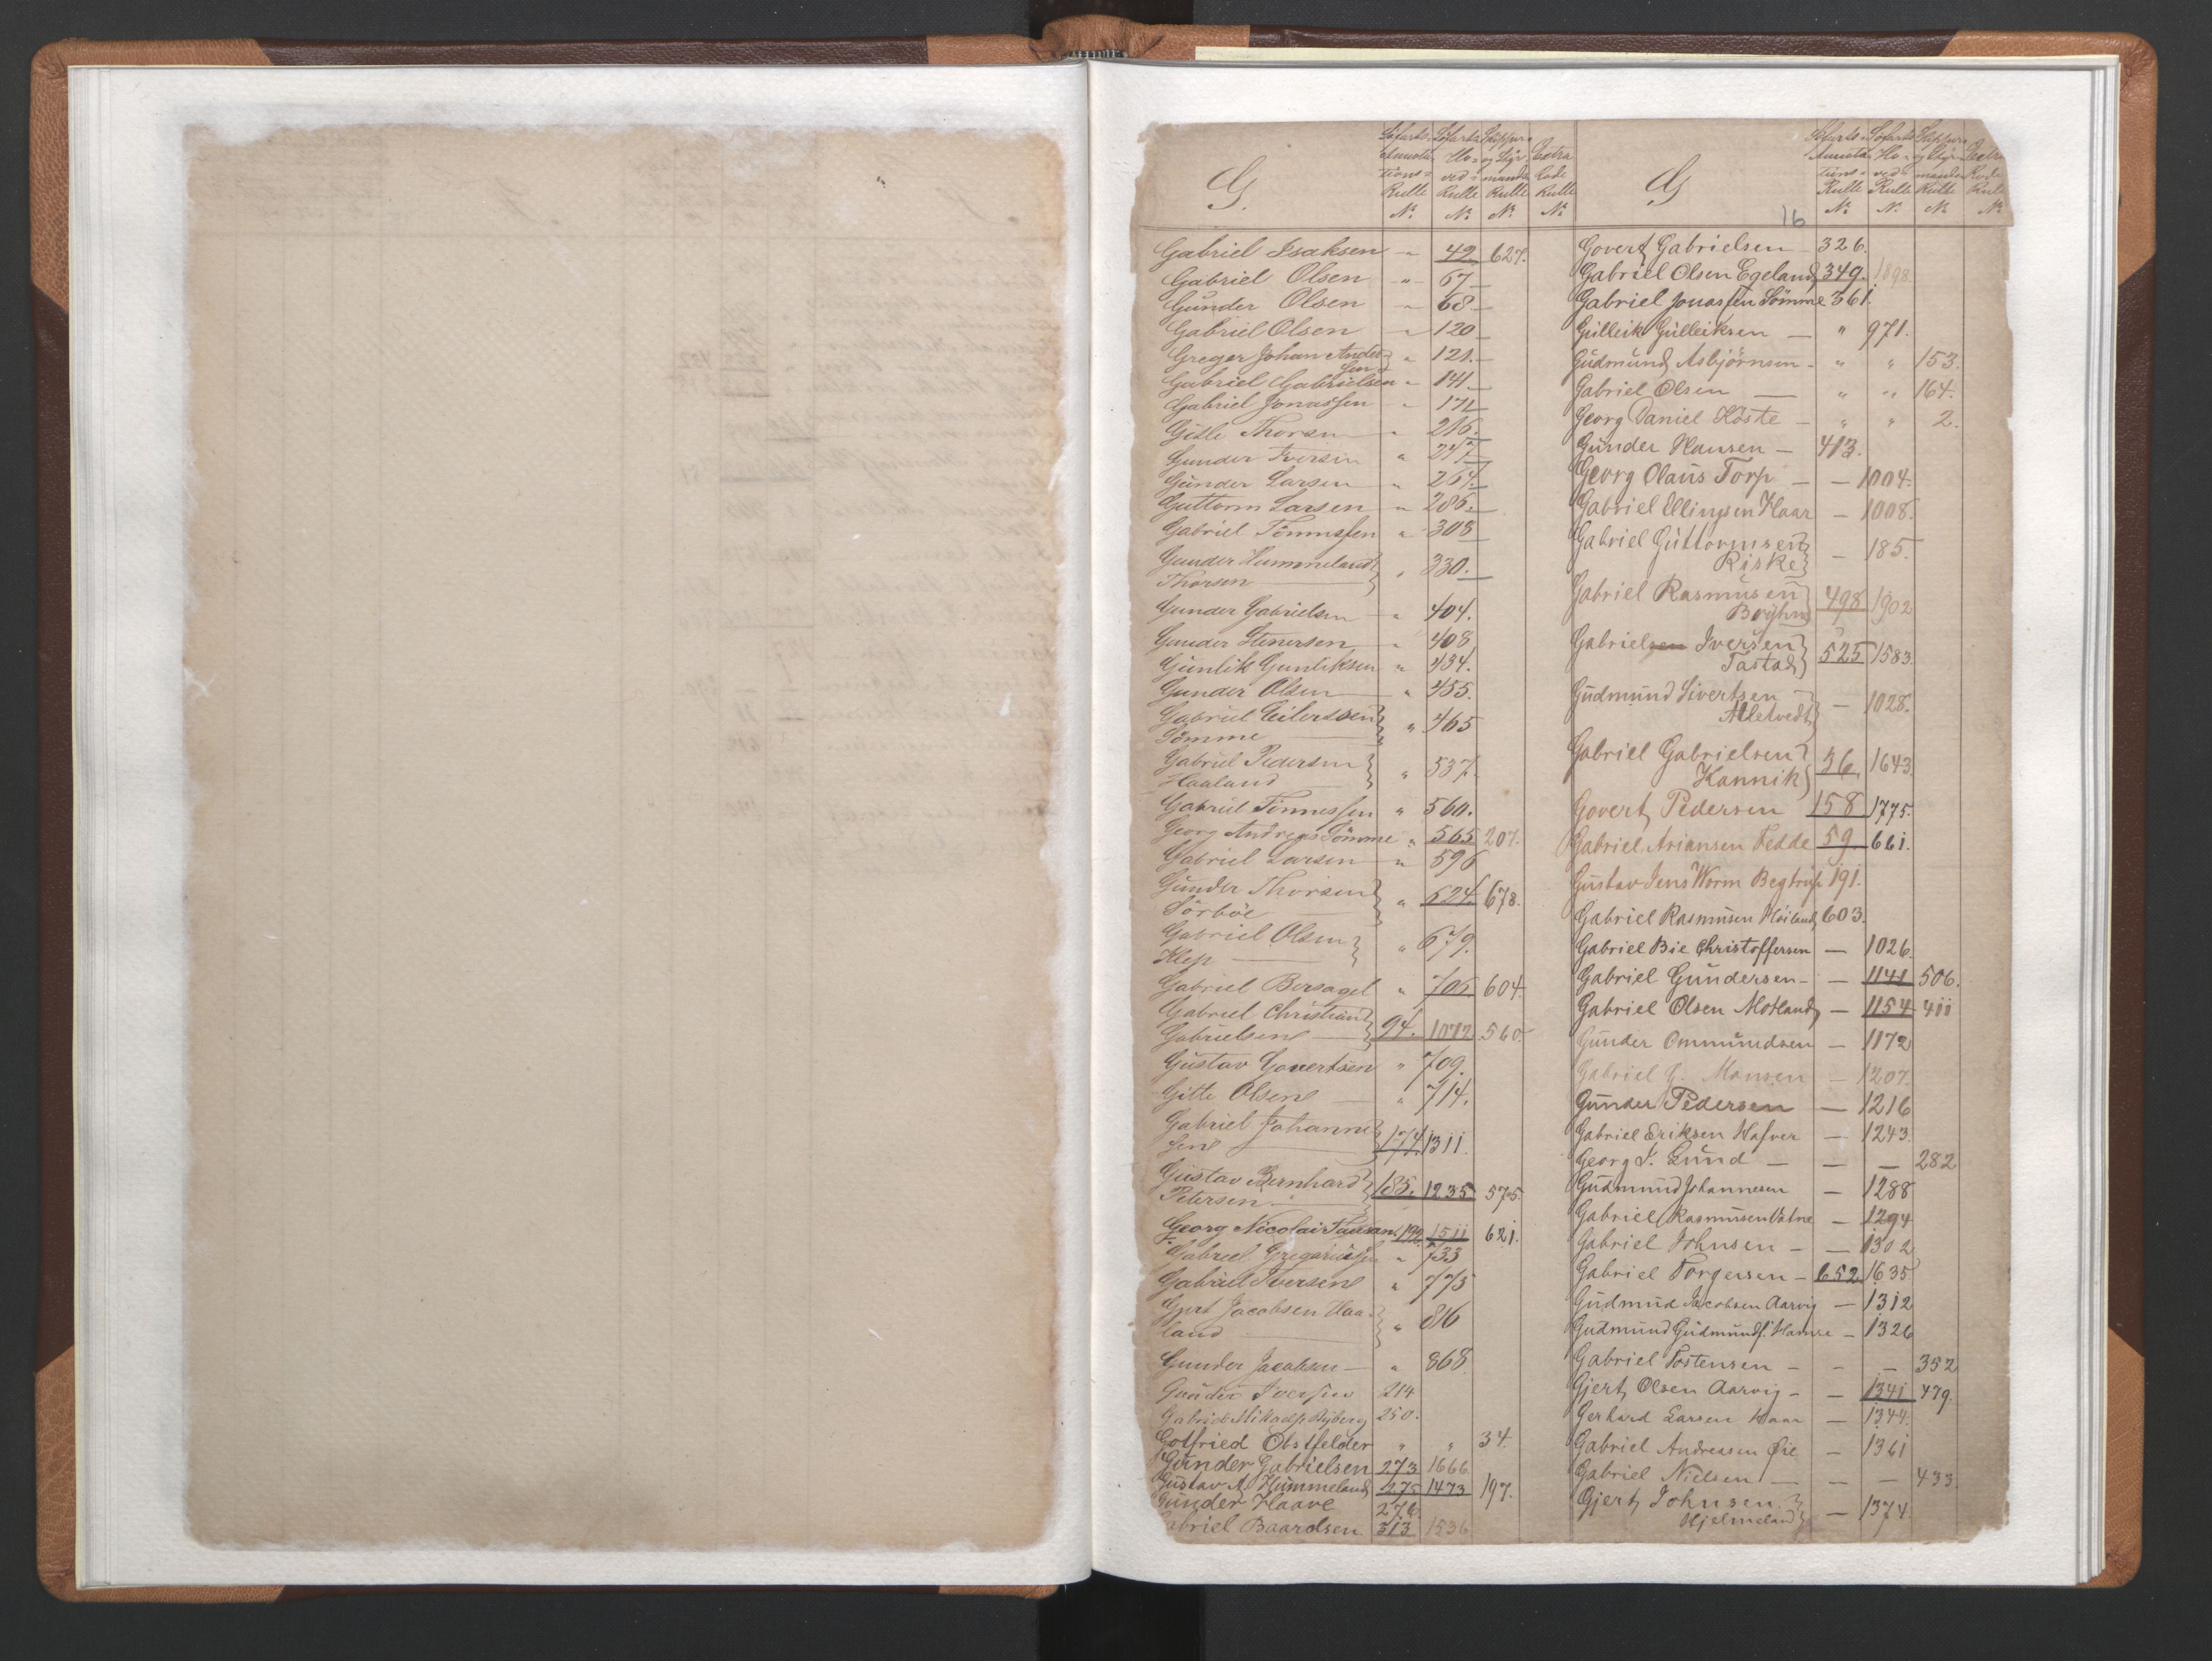 G.
Söfarts- Annota- tions- Rulle No.
Söfarts Ho- ved- Rulle No.
Skipper og Styr- mands Rulle No.
Extra Rode Rulle No.
Gabriel Isaksen " 49 627.
Gabriel Olsen " 67
Gunder Olsen " 68
Gabriel Olsen " 120
Greger Johan Ander- " 121.
sen
Gabriel Gabrielsen " 141
Gabriel Jonassen " 171
Gitle Thorsen " 216.
Gunder Iversen "
Gunder Larsen " 264
Guttorm Larsen " 286.
Gabriel Tönnessen " 308
Gunder Hummeland " 330.
Thorsen
Gunder Gabrielsen " 404.
Gunder Stenersen " 408
Gunlik Gunliksen " 434.
Gunder Olsen " 455.
Gabriel Eilertsen " 465
Sömme
Gabriel Pedersen " 537.
Haaland
Gabriel Tönnessen " 560.
Georg Andreas Sömme " 565 207.
Gabriel Larsen " 596
Gunder Thorsen " 624 678.
Sörböe
Gabriel Olsen " 679.
Klep
Gabriel Bersagel " 705 604.
Gabriel Christian
Gabrielsen 94. 1072 560.
Gustav Govertsen " 709.
Gitle Olsen " 714.
Gabriel Johanne
sen 174. 1311
Gustav Bernhard 185. 1235 575
Petersen
Georg Nicolai 192 1511 621.
Gabriel Gregoriussen " 733
Gabriel Iversen " 775
Gjert Jacobsen Haa- " 816
land
Gunder Jacobsen " 868
Gunder Iversen 214
Gabriel 250.
Gotfried Obstfelder " " 34.
Gunder Gabrielsen 273 1666
Gustav A. Hummeland 275 1473 197.
Gunder Haave 276.
Gabriel Baardsen 313 1536
G
16
Söfarts- Annota- tions- Rulle No.
Söfarts Ho- ved- Rulle No.
Skipper og Styr- mands Rulle No.
Extra Rode Rulle No.
Govert Gabrielsen 326.
Gabriel Olsen Egeland 349. 1898
Gabriel Jonassen Sömme 361.
Gulleik Gulleiksen " 971.
Gudmund Asbjørnsen " " 153.
Gabriel Olsen " " 164.
Georg Daniel Köste " " 2.
Gunder Hansen 413.
Georg Olaus Torp — 1004.
Gabriel Ellingsen Haar — 1008.
Gabriel Guttormsen — 185.
Riske
Gabriel Rasmusen 498 1902
Gabrielsen Iversen 525 1583.
Tastad
Gudmund Sivertsen — 1028.
Gabriel Gabrielsen 36. 1643.
Kannik
Govert Pedersen 158 1775.
Gabriel Ariansen Fedde 59. 661.
Gustav Jens Worm Begtrup 191.
Gabriel Rasmusen Höiland 603.
Gabriel Bie Christoffersen — 1026.
Gabriel Gundersen — 1141 506.
Gabriel Olsen Motland — 1154 411
Gunder Ommundsen — 1172
Gabriel G. Monsen — 1207.
Gunder Pedersen — 1216
Gabriel Eriksen Hafver — 1243.
Georg I. Lund — — 282
Gudmund Johannesen — 1288
Gabriel Rasmusen Vatne — 1294
Gabriel Johnsen — 1302
Gabriel Torgersen 652 1635
Gudmund Jacobsen Aarvig — 1312
Gudmund Gudmunds. Hamre — 1326
Gabriel Tostensen — — 352
Gjert Olsen Aarvig — 1341 479.
Gerhard Larsen Haar — 1344.
Gabriel Andreasen Øie — 1361
Gabriel Nielsen — — 433
Gjert Johnsen — 1374.
Hjelmeland